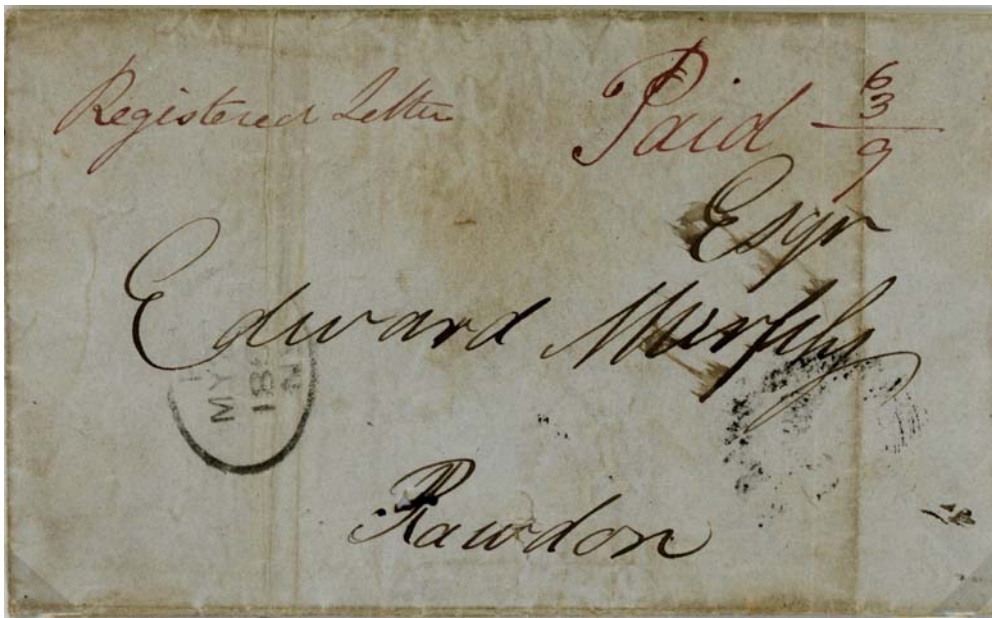 Registered Letter
Paid 6
3
9
Esqr
Edward Murphy
MY
18
N
Rawdon